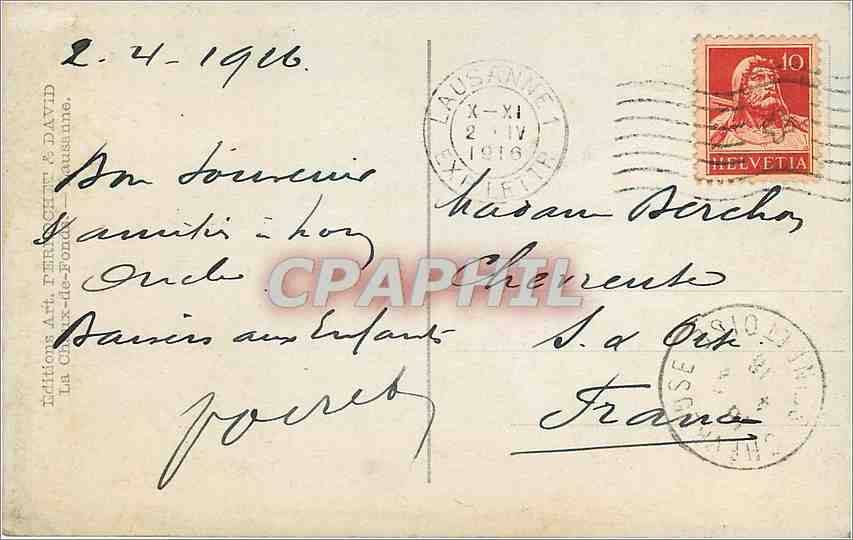 2-4-1916.
Bon Souvenir
d'amitiés à
Oncle
Baisers aux Enfants
Poiret
Editions Art. PERROCHET & DAVID
La Chaux-de-Fonds — Lausanne.
LAUSANNE 1
X-XI
2 IV
1916
EXP. LETTR.
10
HELVETIA
Madame Berchon
Chevreuse
S. & Oise
France
CHEVREUSE
SEINE-ET-OISE
CPAPHIL